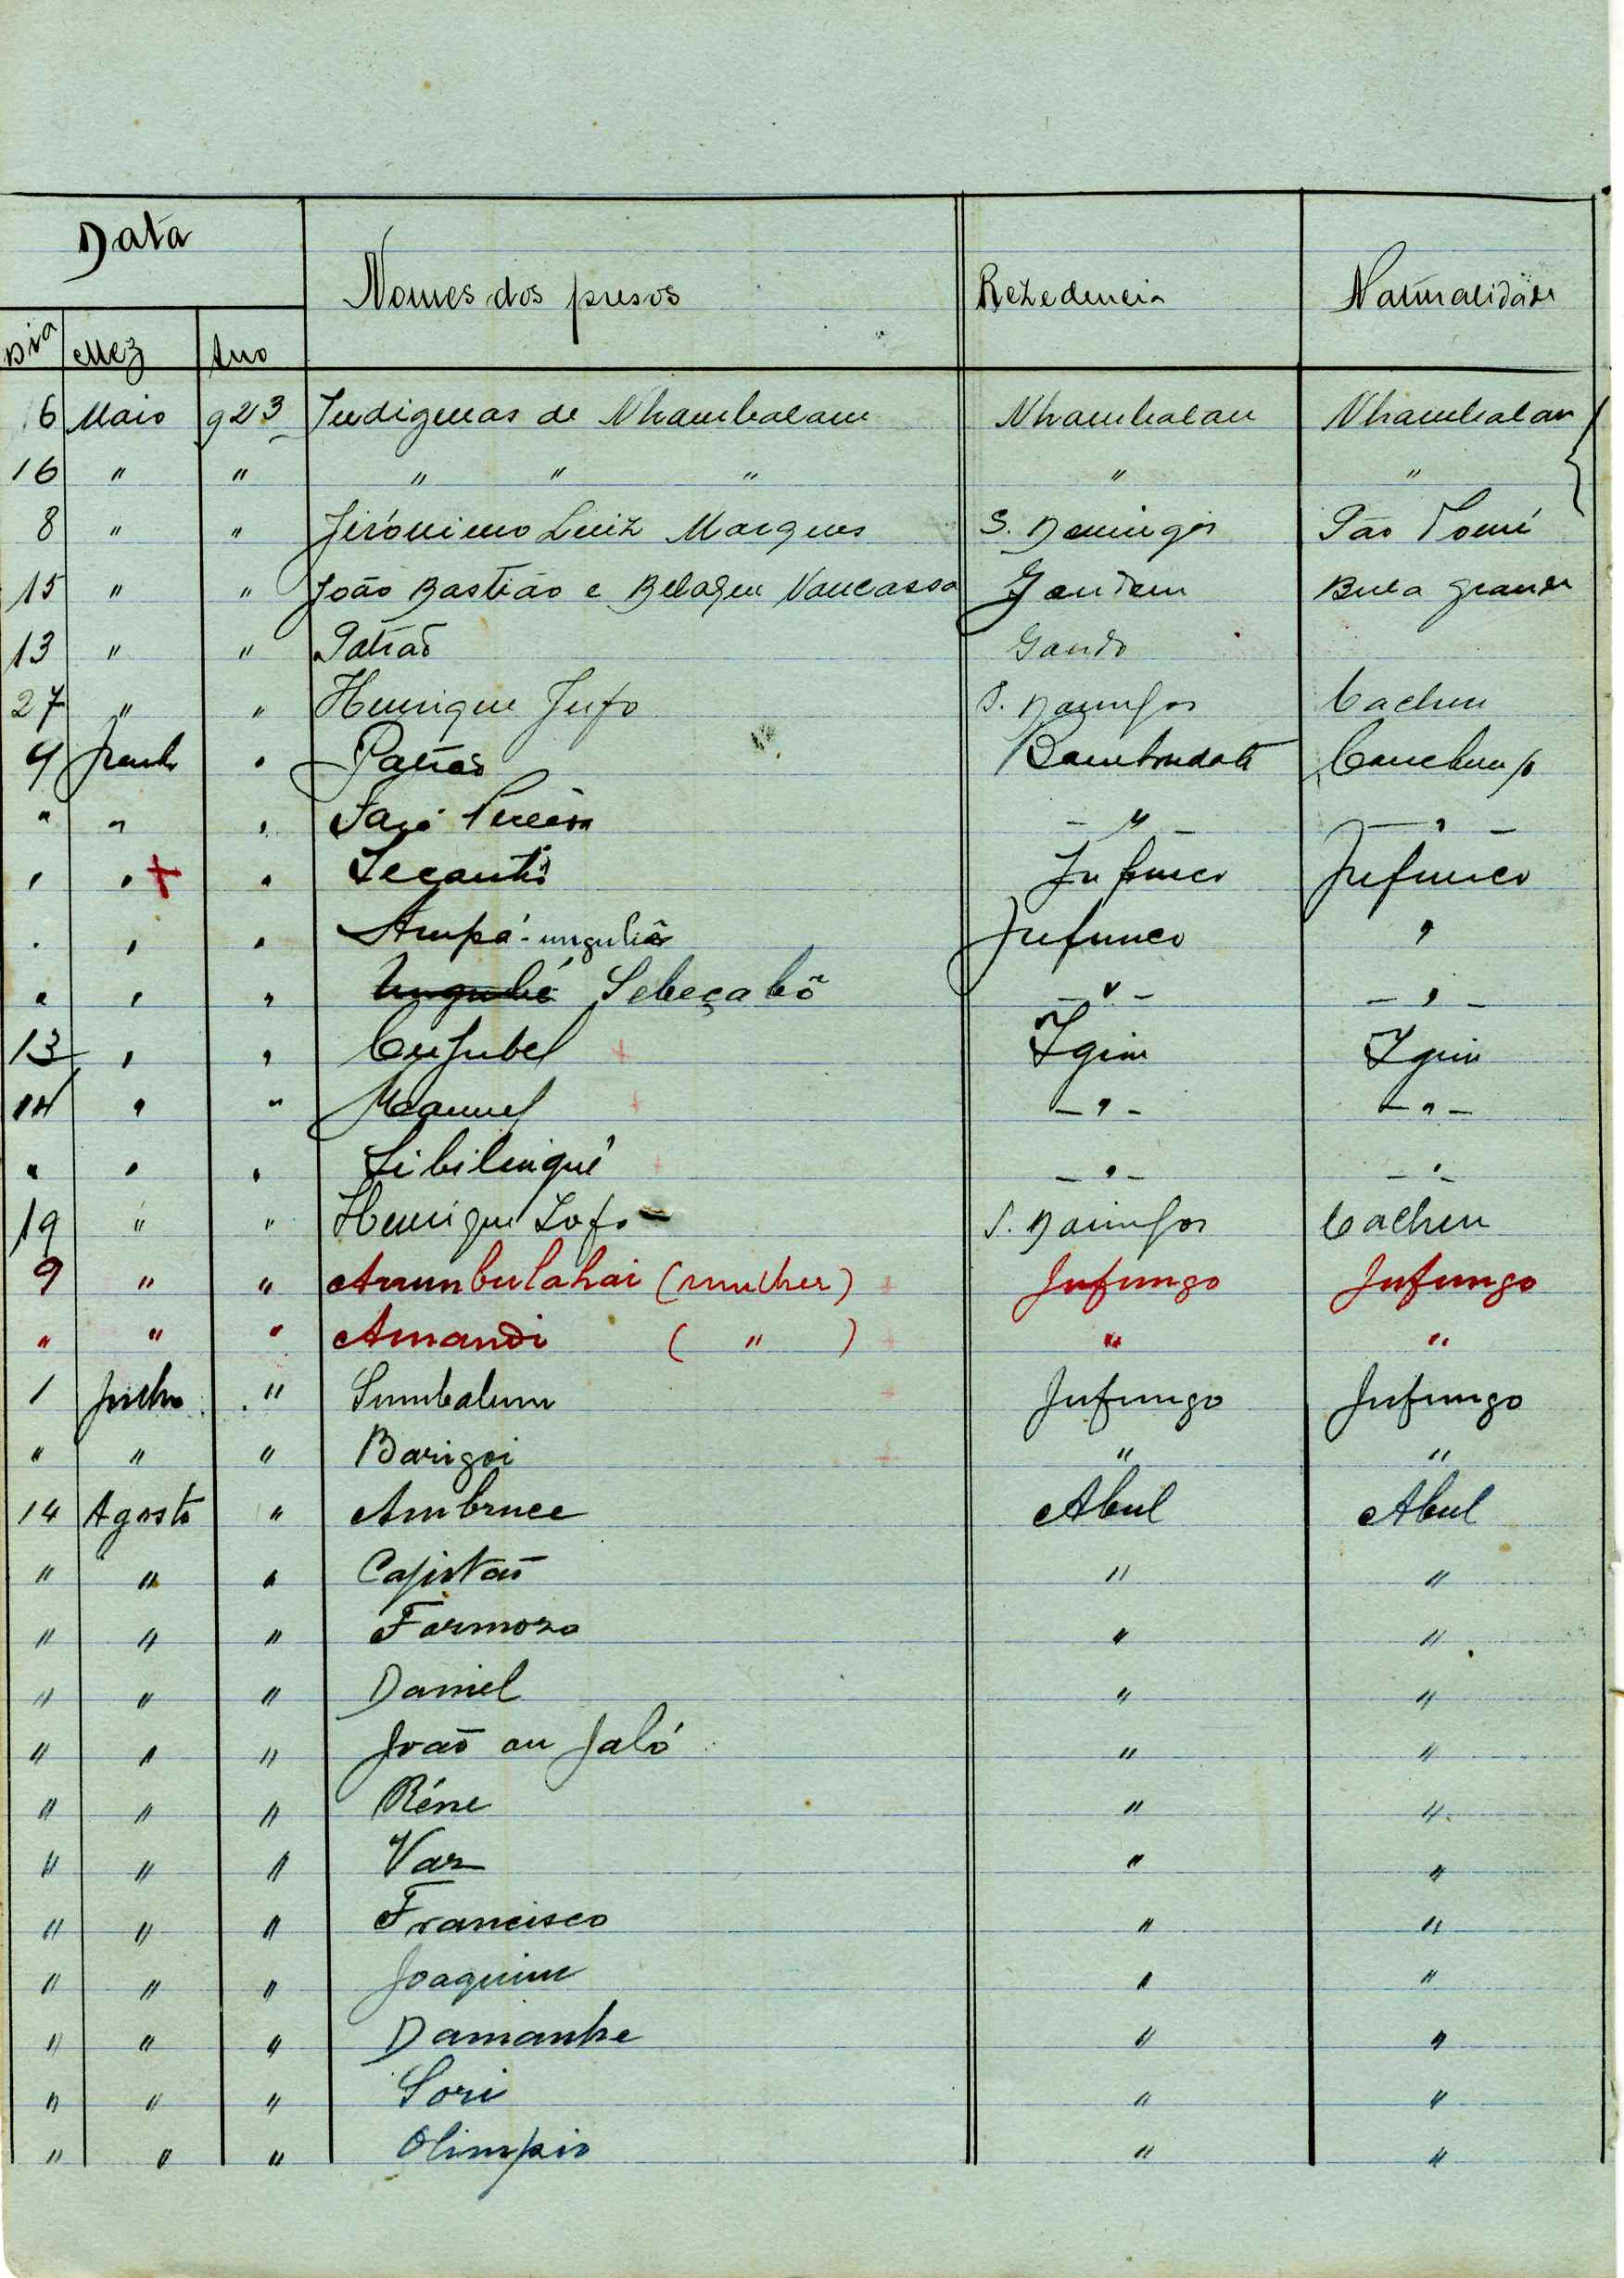 Data
Nomes dos presos Rezedencia Naturalidade
Dia Mez Ano
16 Maio 923 Indigenas de Nhambalam Nhambalan Nhambalan
16 " " " " " " "
8 " " Jirónimo Luiz Marques S. Domingos São Tomé
15 " " João Bastião e Vancasso Bula grande
13 " " Patrão Gando
27 " " Henrique Jufo S. Domingos Cacheu
4 Junho " Patrão
" " " — " — — " —
" " + " Jufunco Jufunco
" " " Jufunco "
" " " Sebeçabõ — " — — " —
13 " " + Igim Igim
14 " " Manuel + — " — — " —
" " " Sibilinqué + — " — — " —
19 " " Henrique Lofo S. Domingos Cacheu
9 " " Amumbulahai (mulher) + Jufungo Jufungo
" " " Amandi ( " ) + " "
1 Julho " Sumbalum + Jufungo Jufungo
" " " Barigoi + " "
14 Agosto " Ambruce Abul Abul
" " " Capistão " "
" " " Formoso " "
" " " Daniel " "
" " " João ou Jaló " "
" " " Réne " "
" " " Vaz " "
" " " Francisco " "
" " " Joaquim " "
" " " Damanhe " "
" " " Sori " "
" " " Olimpio " "